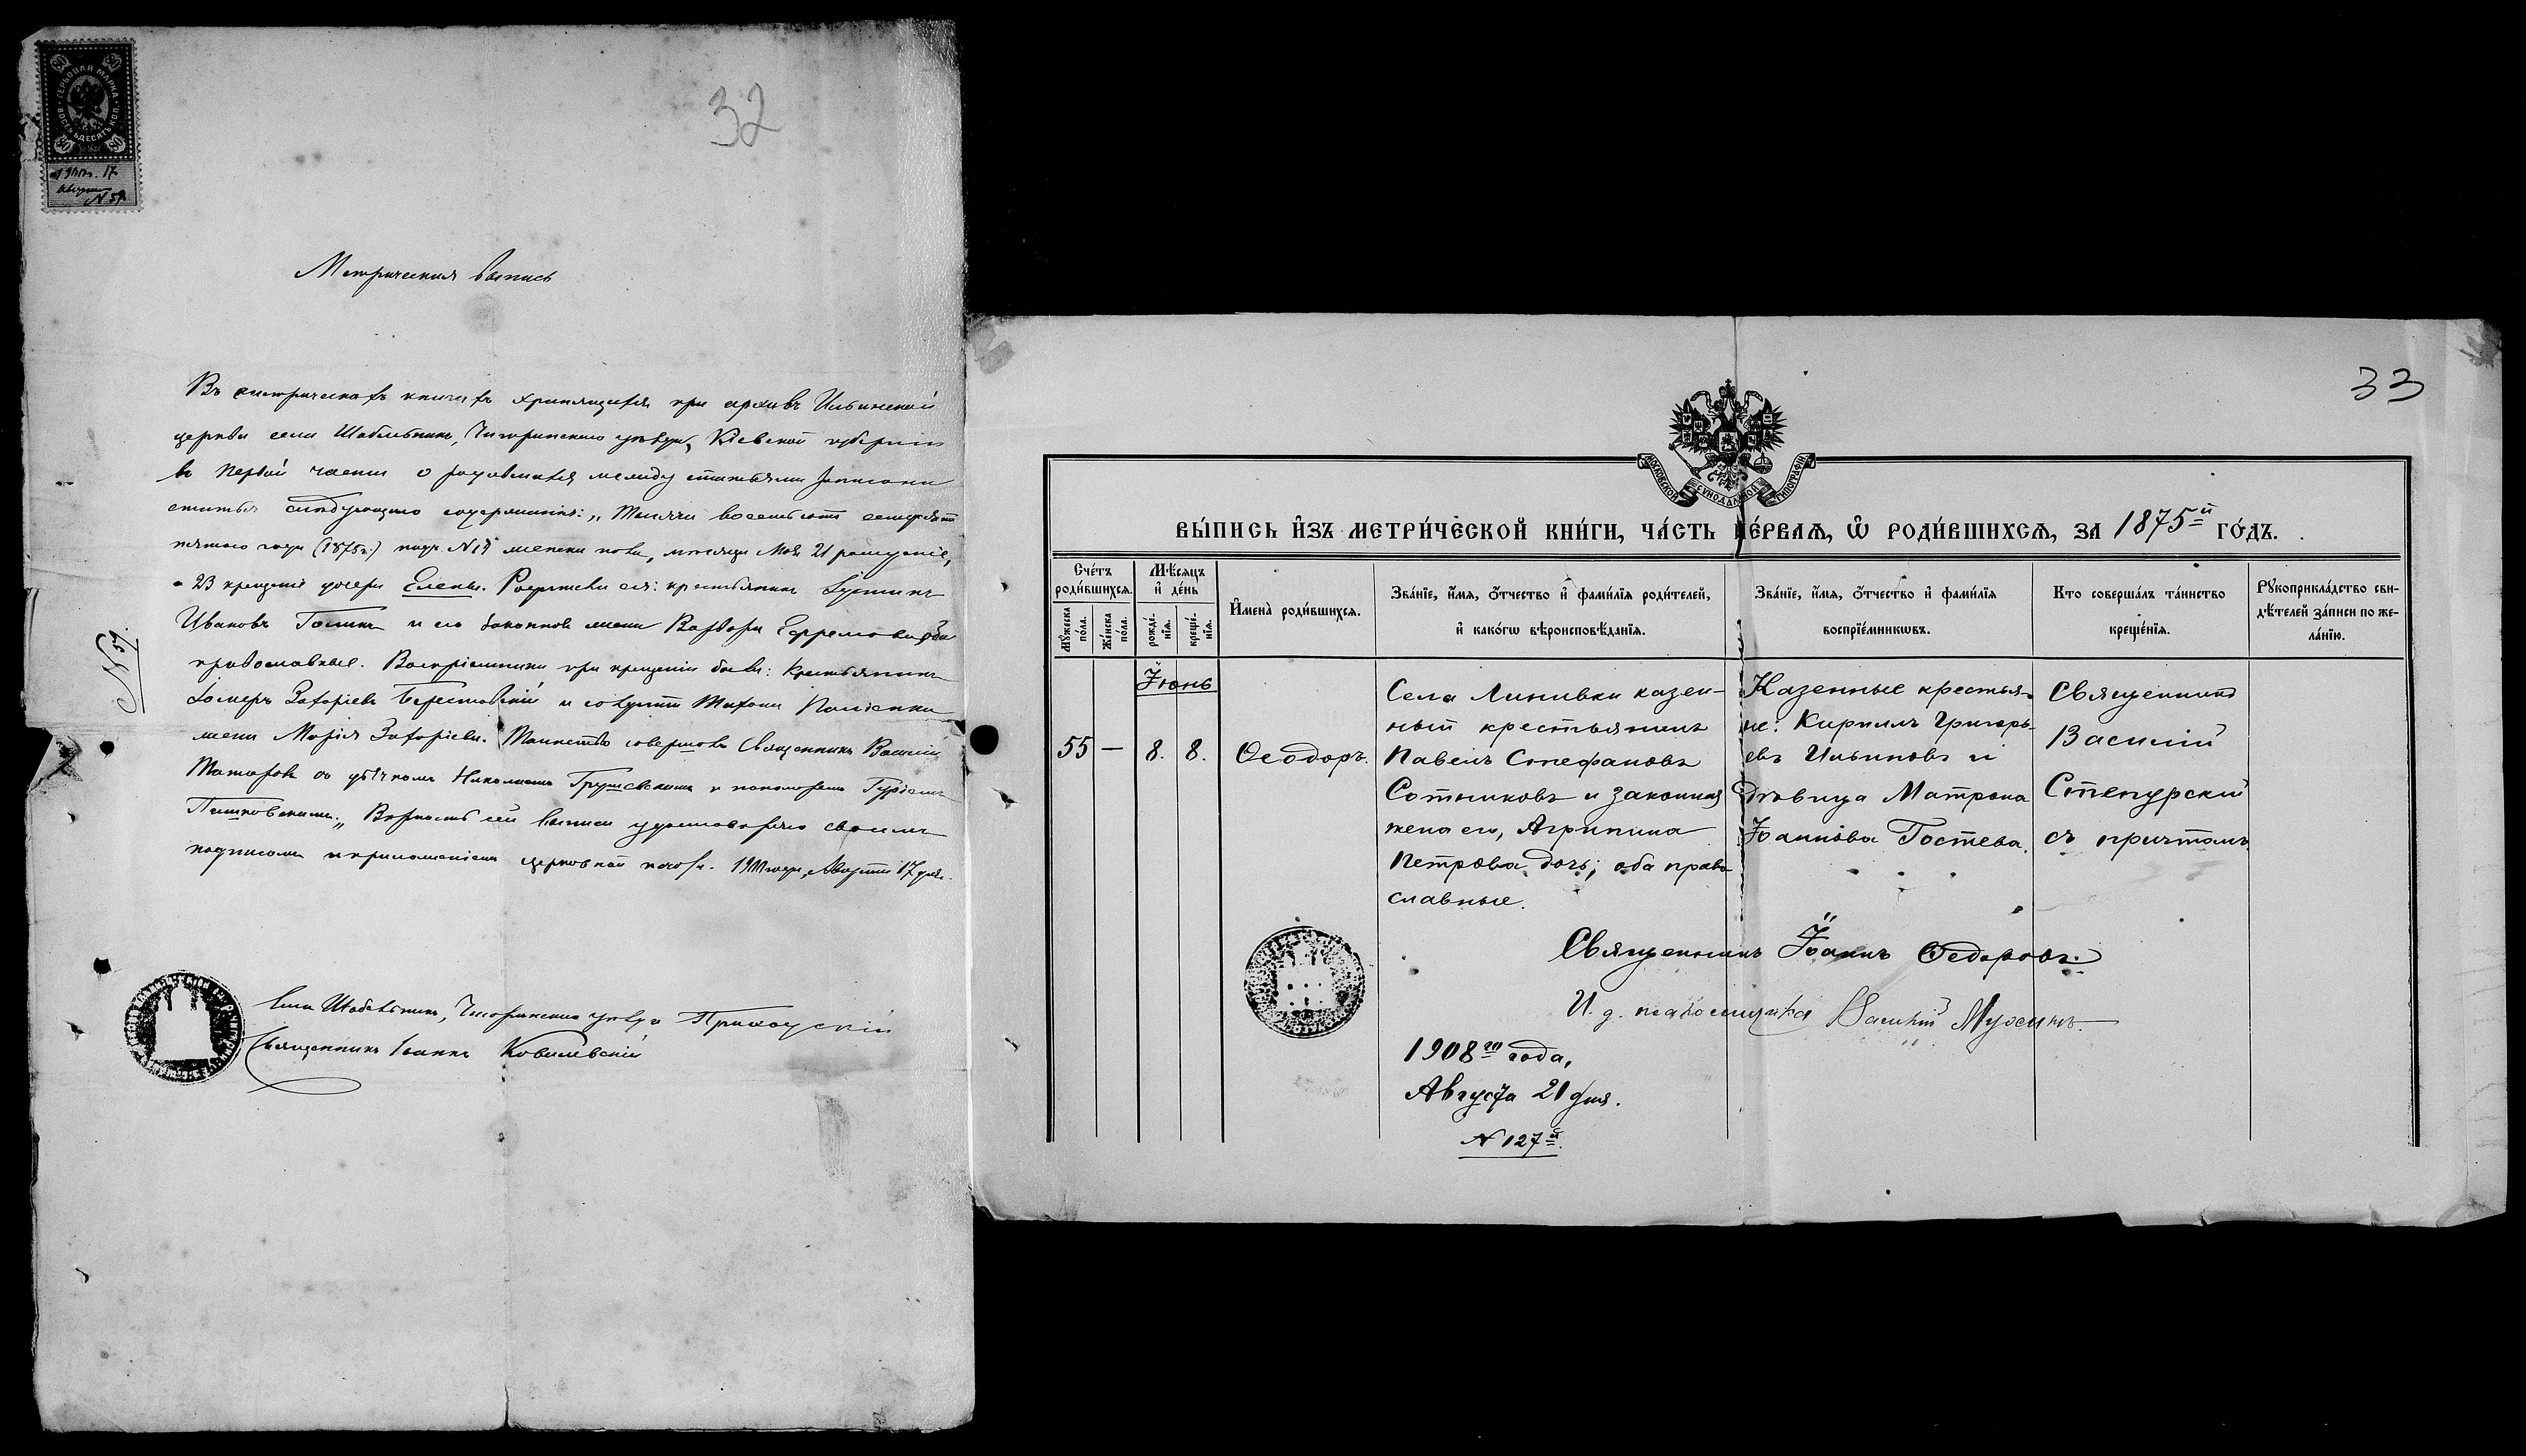 32
ГЕРБОВАЯ МАРКА
ВОСЕМЬДЕСЯТЪ КОП.
80 80
80 80
17
августа
N 59
Метрическая выпись
Въ метрическихъ книгахъ хранящихся при архивѣ Ильинской
церкви села Шабельникъ, Чигиринскаго уѣзда, Кіевской губерніи
въ первой части о родившихся между статьями записана
статья слѣдующаго содержанія: „Тысяча восемьсотъ семьдесятъ
пятаго года (1875 г.) подъ № женска пола, мѣсяца Мая 21 рожденіе,
а 23 крещеніе дочери Елены. Родители ея: крестьянинъ Іустинъ
Ивановъ и его законная жена Варвара Ефремова, оба
православные. Воспріемники при крещеніи были: Крестьянинъ
Захаріевъ Берестовскій и
жена Марія Захаріева. Таинство совершалъ Священникъ Василій
съ дьячкомъ Николаемъ Грушевскимъ и пономаремъ Гуріемъ
Вѣрность сей выписи удостовѣряю своимъ
подписомъ и приложеніемъ церковной печати. года, Августа 17 дня.
Села Шабельникъ, Чигиринскаго уѣзда Приходскій
Священникъ Іоаннъ Ковалевскій
33
МОСКОВСКОЙ СѴНОДАЛЬНОЙ ТИПОГРАФІИ
ВЫ́ПИСЬ И҆ЗЪ МЕТРИ́ЧЕСКОЙ КНИ́ГИ, ЧА́СТЬ ПЕ́РВАѦ, Ѽ РОДИ́ВШИХСѦ, ЗА 1875й ГО́ДЪ.
Сче́тъ роди́вшихсѧ.
Мꙋ́жеска по́ла.
Же́нска по́ла.
Мѣ́сѧцъ и҆ де́нь
рожде́нїѧ.
креще́нїѧ.
И҆мена̀ роди́вшихсѧ.
Зва́нїе, и҆́мѧ, ѻ҆́тчество и҆ фами́лїѧ роди́телей,
и҆ како́гѡ вѣроисповѣ́данїѧ.
Зва́нїе, и҆́мѧ, ѻ҆́тчество и҆ фами́лїѧ
воспрїе́мникѡвъ.
Кто соверша́лъ та́инство
креще́нїѧ.
Рꙋкоприкла́дство сви-
дѣ́телей за́писи по же-
ла́нїю.
Іюнь
55 — 8. 8. Ѳеодоръ.
Села Линивки казен-
ный крестьянинъ
Павелъ Стефановъ
Сотниковъ и законная
жена его, Агрипина
Петрова дочь; оба право-
славные.
Казенные крестья-
не: Кириллъ Григорь-
евъ Ильиновъ и
дѣвица Матрона
Іоаннова Гостева.
Священникъ
Василій
Степурскій
съ причтомъ.
Священникъ Іоаннъ Ѳедоровъ.
И. д. псаломщика Василій Мухинъ.
1908го года,
Августа 21 дня.
N 127й.